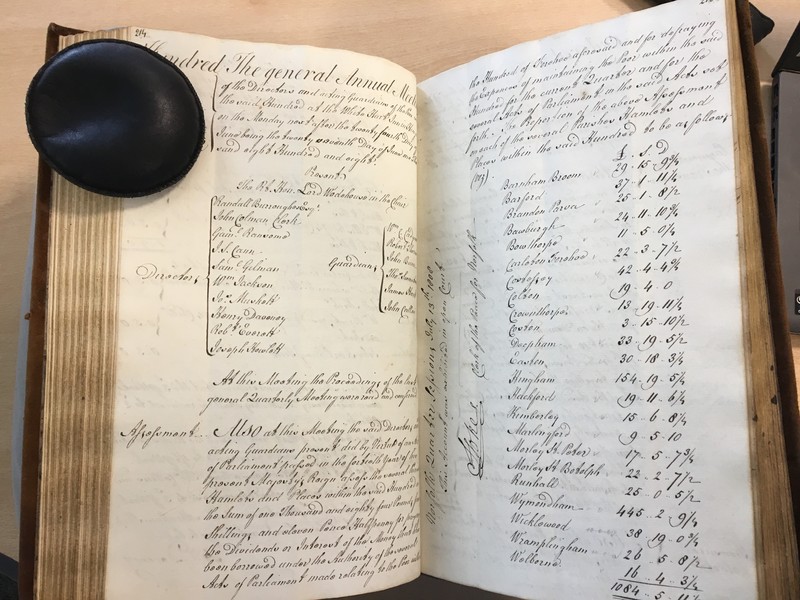 214.
Hundred The general Annual Meeti
of the Directors and acting Guardians of the Poor
the said Hundred at the White Hart Inn
on the Monday next after the twenty fourth Day of
June being the twenty seventh Day of June
sand eight Hundred and eight
Present
The Rt. Hon. Lord Wodehouse in the Chair
Randall Burroughes Esqr.
John Colman Clerk
Saml. Ransome
J. S. Cann
Directors
Saml. Gilman
Wm. Jackson
Jas. Muskett
Henry Daveney
Robt. Everett
Joseph Howlett
Guardians
At this Meeting the Proceedings of the last
general Quarterly Meeting were read and confirmed
Assessment
Also at this Meeting the said Directors
acting Guardians present did by Virtue of an
of Parliament passed in the fortieth Year of
present Majesty's Reign assess the several
Hamlets and Places within the said Hundred
the Sum of one Thousand and eighty four Pounds
Shillings and eleven Pence Halfpenny for
the Dividends or Interest of the Money
been borrowed under the Authority of the several
Acts of Parliament made relating to the Poor
Norfolk Quarter Sessions, July 13th, 1808
This Account was in open Court
Clerk of the Peace for Norfolk
the Hundred of Forehoe aforesaid and for defraying
the Expences of maintaining the Poor within the said
Hundred for the current Quarter and for the
several Acts of Parliament in the said Acts set
forth. The Proportion of the above Assessment
on each of the several Parishes Hamlets and
Places within the said Hundred to be as follows
(viz)
£ S D
Barnham Broom 29 - 15 - 9¾
Barford 37 - 1 - 11¼
Brandon Parva 25 - 1 - 8½
Bawburgh 24 - 11 - 10¾
Bowthorpe 11 - 5 - 0¼
Carleton Forehoe 22 - 3 - 7½
Costessey 42 - 4 - 4¾
Colton 19 - 4 - 0
Crownthorpe 13 - 19 - 11¼
Coston 3 - 15 - 10½
Deopham 33 - 19 - 5½
Easton 30 - 18 - 3¼
Hingham 154 - 19 - 5¼
Hackford 19 - 11 - 6¼
Kimberley 15 - 6 - 8¼
Marlingford 9 - 5 - 10
Morley St. Peter 17 - 5 - 7¾
Morley St. Botolph 22 - 2 - 7½
Runhall 25 - 0 - 5½
Wymondham 445 - 2 - 9¼
Wicklewood 38 - 19 - 0¾
Wramplingham 26 - 5 - 8½
Welborne 16 - 4 - 3¼
1084 - 5 - 11½